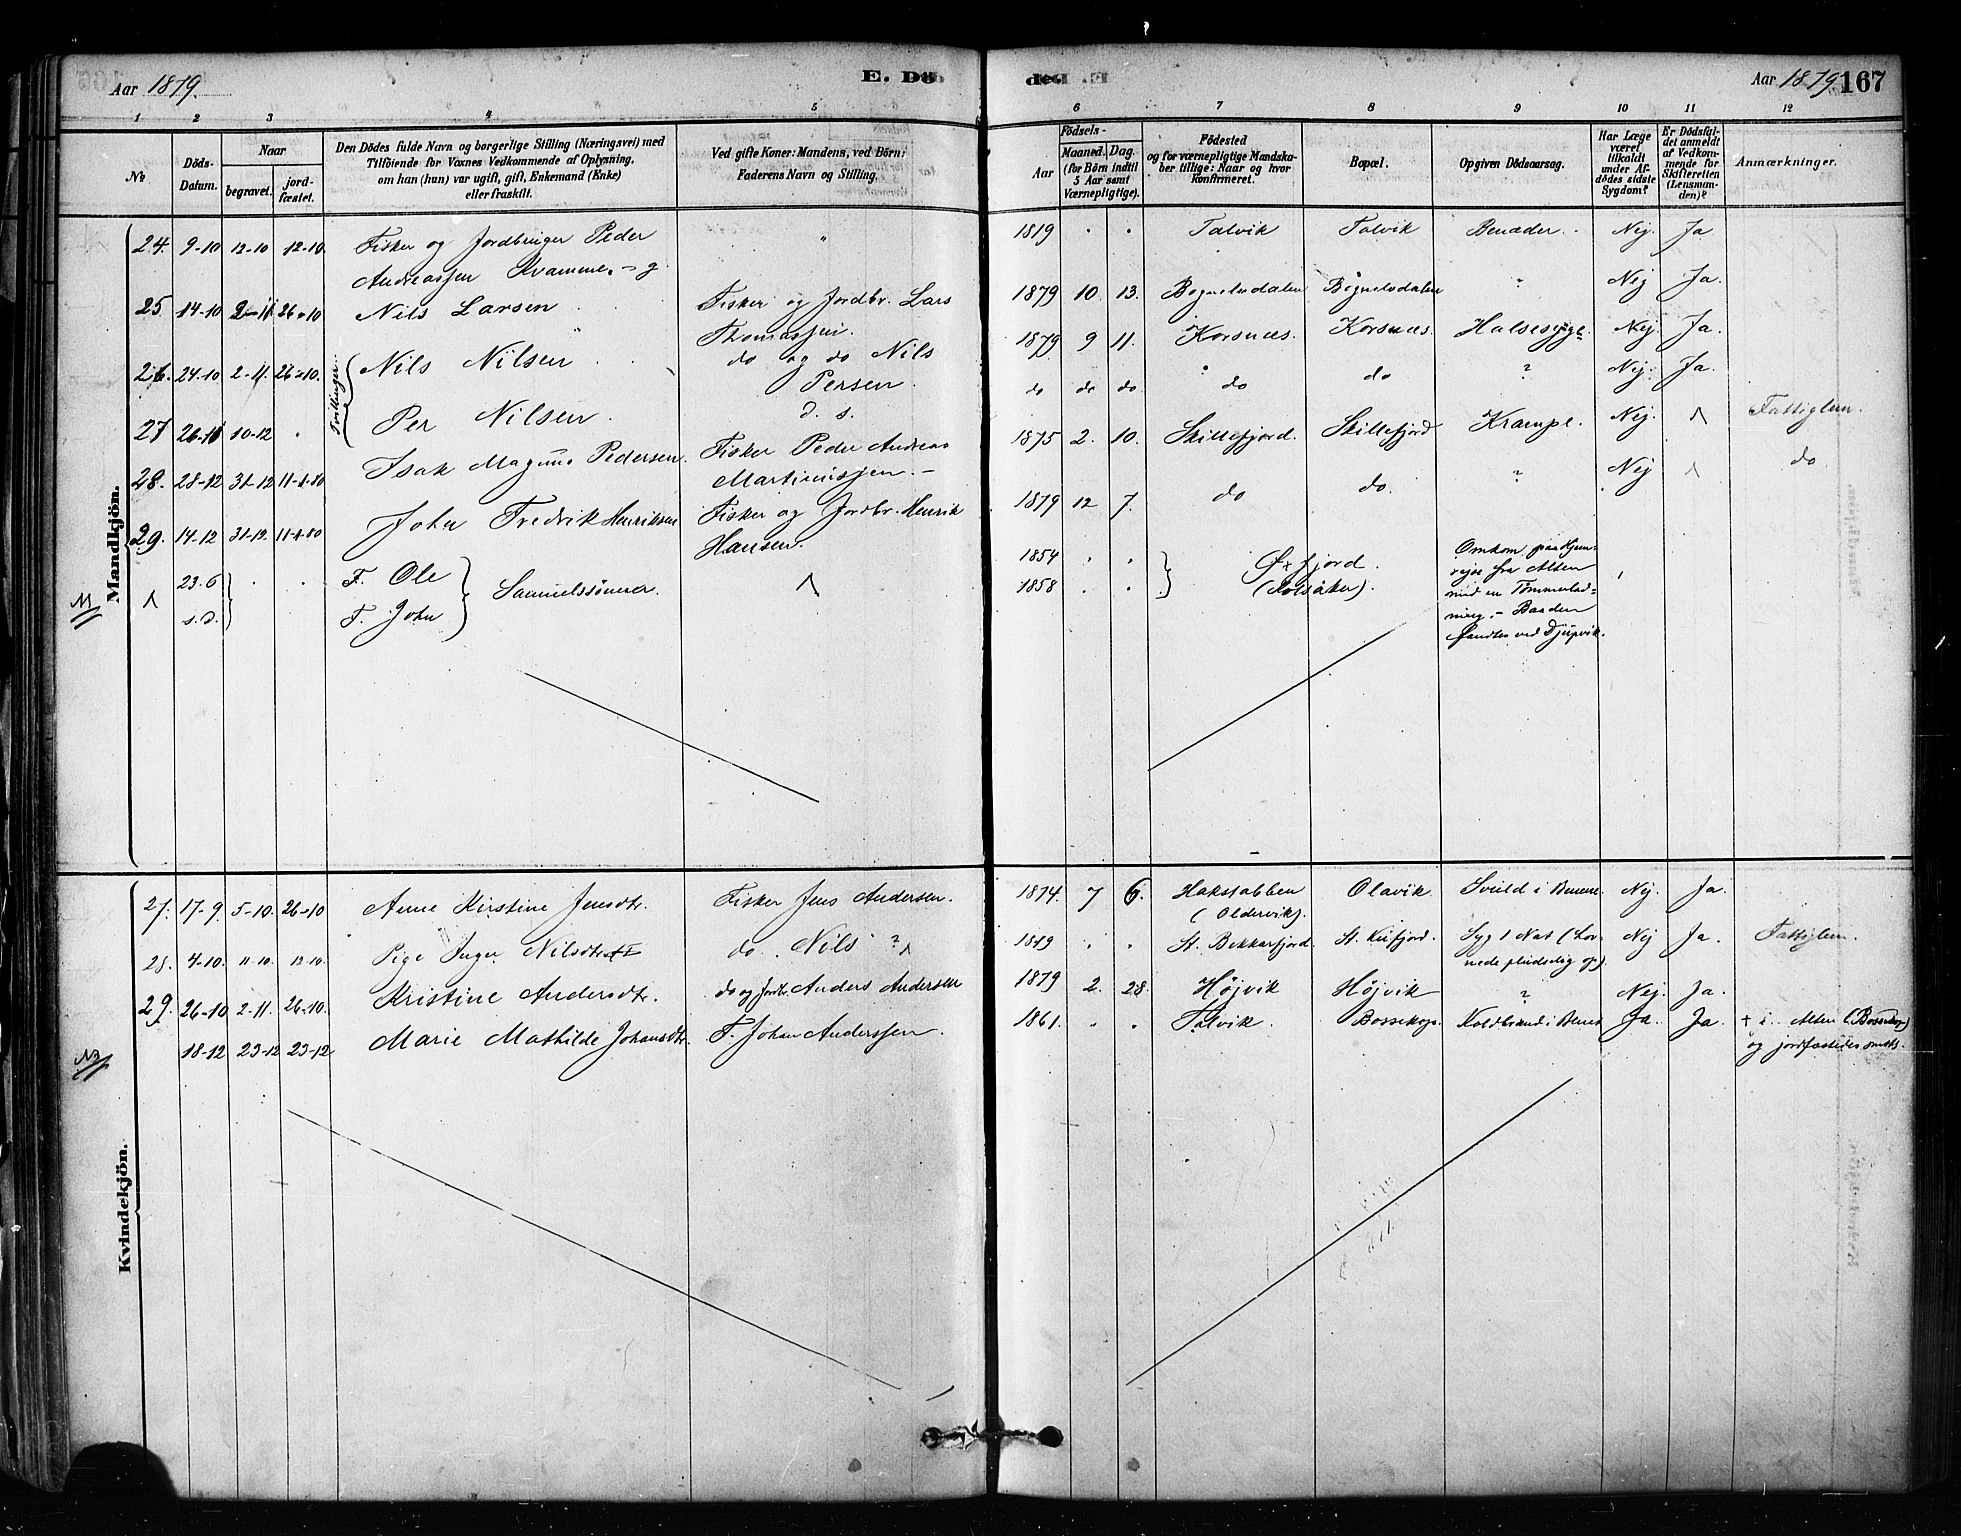 Aar 1879.
E. Dö
1 2 3 4 5
№
Döds-
Datum.
Naar
begravet.
jord-
fæstet.
Den Dödes fulde Navn og borgerlige Stilling (Næringsvei) med
Tilföiende for Voxnes Vedkommende af Oplysning,
om han (hun) var ugift, gift, Enkemand (Enke)
eller fraskilt.
Ved gifte Koner: Mandens, ved Börn:
Faderens Navn og Stilling.
Mandkjön.
24. 9-10 12-10 12-10. Fisker og Jordbruger Peder "
Andreassen Kvamme. - g
25 14-10 2-11 26-10 Nils Larsen Fisker og Jordbr. Lars
Thomassen.
Tvillinger
26. 24-10 2-11. 26-10. Nils Nilsen do og do Nils
Persen.
27 26-10 10-12 . Per Nilsen. d. s.
28. 28-12 31-12 11-1-80 Isak Magnus Pedersen. Fisker Peder Andreas
Martinussen. -
29. 14-12 31-12. 11-1-80 John Fredrik Henriksen Fisker og Jordbr. Henrik
Hansen.
23.6 . . F. Ole
s.d. F. John
Samuelssönner
Kvindekjön.
27. 17-9. 5-10. 26-10 Anne Kirstine Jensdtr. Fisker Jens Andersen.
28. 4-10. 11-10. 12-10. Pige Inger Nilsdtr do. Nils ?
29. 26-10 2-11. 26-10. Kristine Andersdtr. do og Jordbr. Anders Andersen
18-12 23-12 23-12 Marie Mathilde Johansdtr. F. Johan Anderssen.
död. E.
Aar 1879. 167
6 7 8 9 10 11 12
Födsels-
Aar
Maaned. Dag.
(for Börn indtil
5 Aar samt
Værnepligtige).
Födested
og for værnepligtige Mandska-
ber tillige: Naar og hvor
Konfirmeret.
Bopæl.
Opgiven Dödsaarsag.
Har Læge
været
tilkaldt
under Af-
dödes sidste
Sygdom?
Er Dödsfal-
det anmeldt
af Vedkom-
mende for
Skifteretten
(Lensman-
den)?
Anmærkninger.
1819 . . Talvik Talvik Benæder. Nej. Ja
1879 10. 13. Bognelvdalen Bognelvdalen " Nej Ja.
1879 9 11. Korsnæs. Korsnæs. Halsesyge Nej. Ja.
do do do do do ? Nej. Ja.
1875 2. 10. Skillefjord. Skillefjord Krampe. Nej. Fattiglem.
1879 12 7. do do. ? Nej do
1854 . .
1858 . .
Øxfjord.
Omkom paa Hjem-
rejse fra Alten
med en Tømmerlad-
ning. - Baaden
fandtes ved Djupvik.
1874. 7 6. Hakstabben Olavik. Svuld i Benene. Nej. Ja.
(Oldervik).
1819 . . St. Bekkarfjord. Nej Ja. Fattiglem.
1879 2. 28. Højvik Højvik ? Nej. Ja.
1861. . . Talvik. Bossekop. Koldbrand i Benet Ja. Ja. + i Alten (Bossekop)
og jordfæstedes sammests.